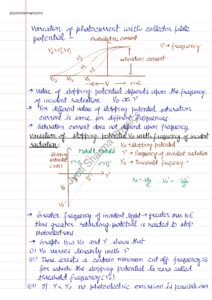 @arjitsharmaphysics
Variation of photocurrent with collector plate
potential -
Photoelectric current
ν = frequency
saturation current
→ Value of stopping potential depends upon the frequency
of incident radiation V₀ ∝ ν
→ For different value of stopping potential, saturation
current is same for different frequencies
→ Saturation current does not depend upon frequency.
Variation of stopping potential V₀ with frequency of incident
radiation
V₀ = stopping potential
Stopping
potential
(volt)
Metal A
Metal B
ν = Frequency of incident radiation
ν₀ = Threshold frequency
→ Greater frequency of incident light → greater max KE
thus greater retarding potential is needed to stop
photoelectrons
→ Graph b/w V₀ and ν shows that
(i) V₀ varies linearly with ν
(ii) There exists a certain minimum cut off frequency ν₀
for which the stopping potential is zero called
threshold frequency (ν₀)
(iii) If ν < ν₀ no photoelectric emission is possible even